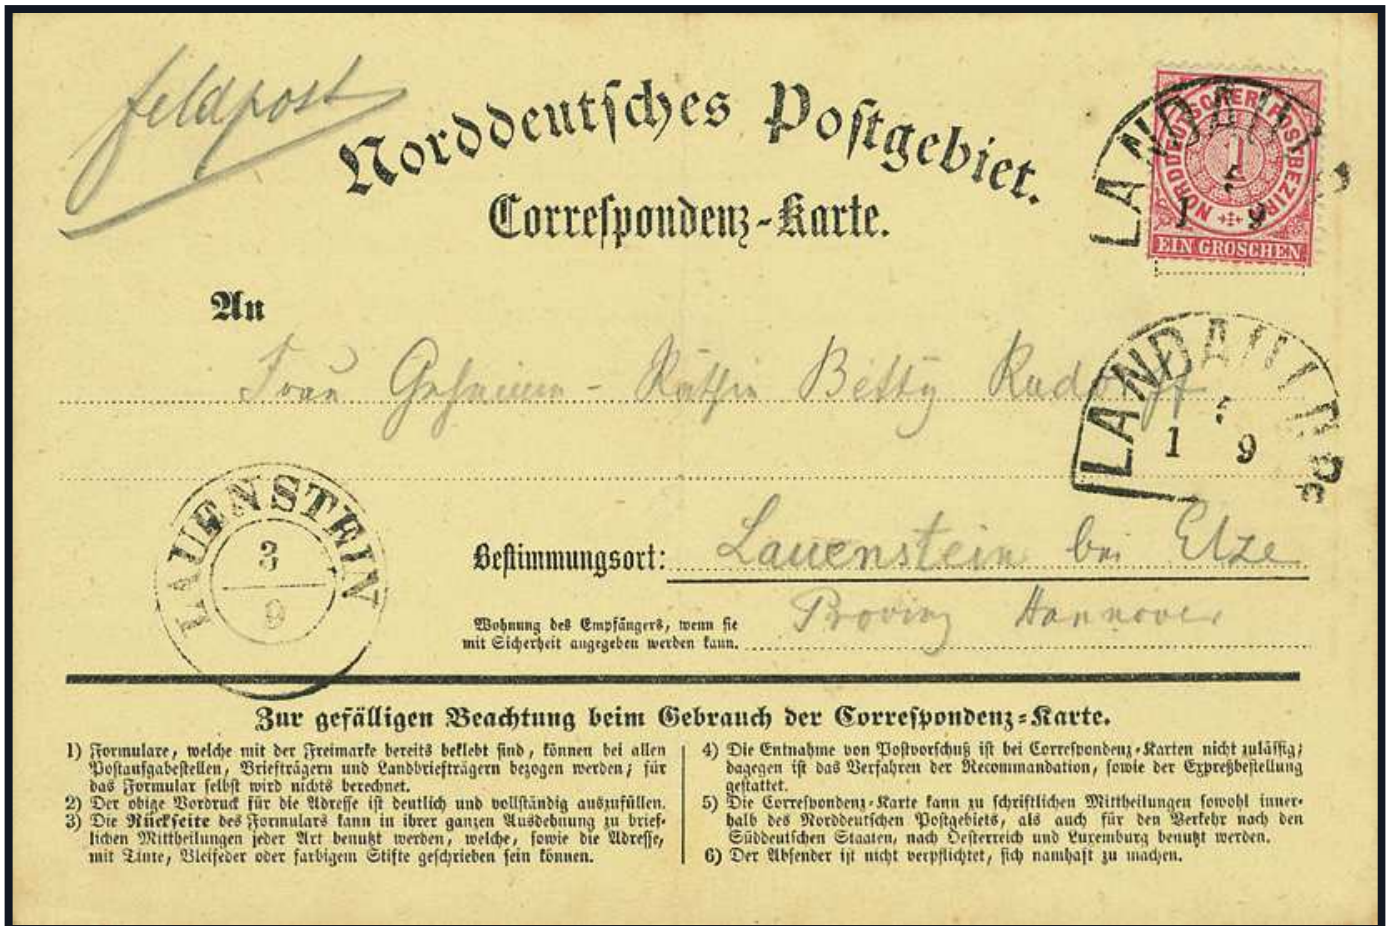 feldpost
Norddeutsches Postgebiet.
Correspondenz-Karte.
NORDDEUTSCHER POSTBEZIRK
1
EIN GROSCHEN
LANDAU
1 9
An
Frau Geheime-Räthin Betty Rudorff
LANDAU
1 9
LAUENSTEIN
3
9
Bestimmungsort: Lauenstein bei Elze
Wohnung des Empfängers, wenn sie
mit Sicherheit angegeben werden kann. Provinz Hannover
Zur gefälligen Beachtung beim Gebrauch der Correspondenz-Karte.
1) Formulare, welche mit der Freimarke bereits beklebt sind, können bei allen
Postaufgabestellen, Briefträgern und Landbriefträgern bezogen werden; für
das Formular selbst wird nichts berechnet.
2) Der obige Vordruck für die Adresse ist deutlich und vollständig auszufüllen.
3) Die Rückseite des Formulars kann in ihrer ganzen Ausdehnung zu brief-
lichen Mittheilungen jeder Art benutzt werden, welche, sowie die Adresse,
mit Tinte, Bleifeder oder farbigem Stifte geschrieben sein können.
4) Die Entnahme von Postvorschuß ist bei Correspondenz-Karten nicht zulässig;
dagegen ist das Verfahren der Recommandation, sowie der Expreßbestellung
gestattet.
5) Die Correspondenz-Karte kann zu schriftlichen Mittheilungen sowohl inner-
halb des Norddeutschen Postgebiets, als auch für den Verkehr nach den
Süddeutschen Staaten, nach Oesterreich und Luxemburg benutzt werden.
6) Der Absender ist nicht verpflichtet, sich namhaft zu machen.